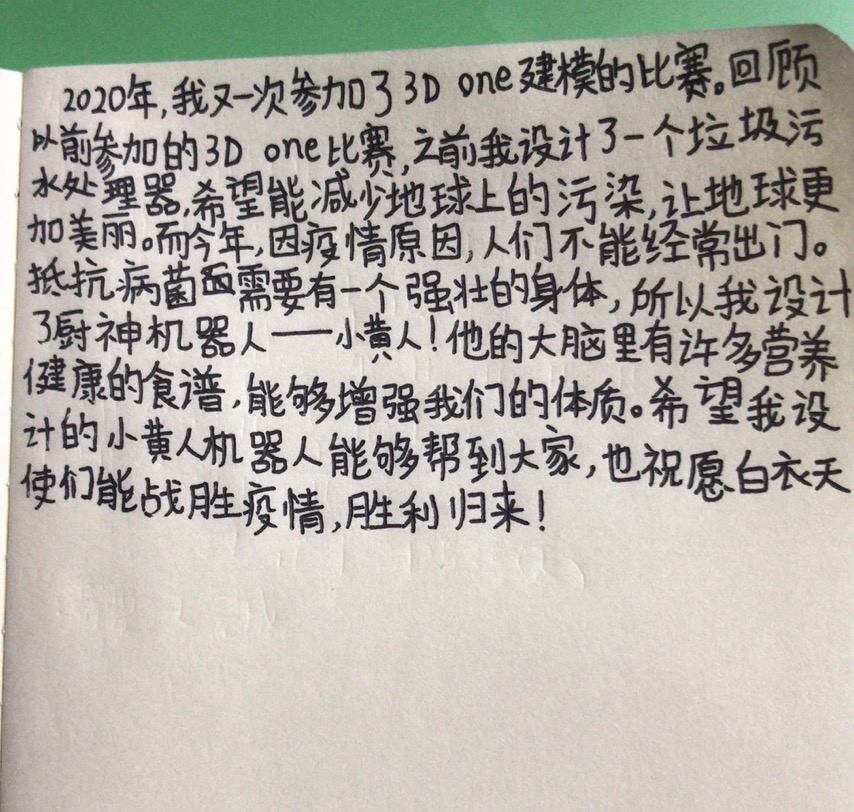 2020年,我又一次参加了3D one建模的比赛。回顾
以前参加的3D one比赛,之前我设计了一个垃圾污
水处理器,希望能减少地球上的污染,让地球更
加美丽。而今年,因疫情原因,人们不能经常出门。
抵抗病菌需要有一个强壮的身体,所以我设计
了厨神机器人——小黄人!他的大脑里有许多营养
健康的食谱,能够增强我们的体质。希望我设
计的小黄人机器人能够帮到大家,也祝愿白衣天
使们能战胜疫情,胜利归来!